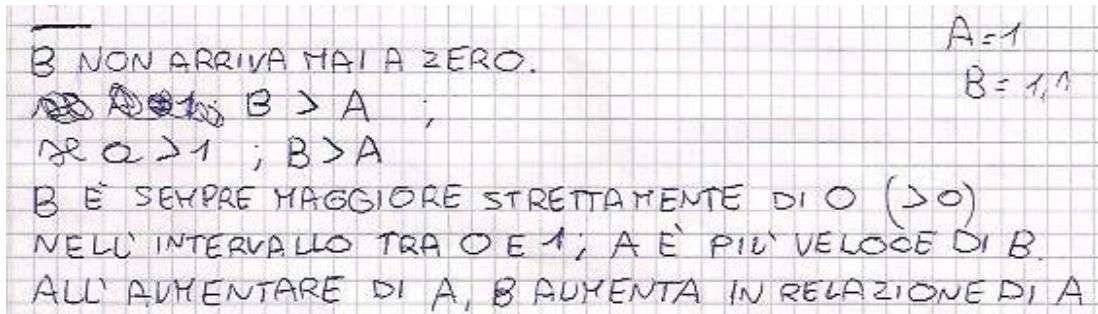 A=1
B NON ARRIVA MAI A ZERO.
B = 1,1
B > A ;
se a > 1 ; B > A
B È SEMPRE MAGGIORE STRETTAMENTE DI 0 (>0)
NELL' INTERVALLO TRA 0 E 1; A È PIU' VELOCE DI B.
ALL' AUMENTARE DI A, B AUMENTA IN RELAZIONE DI A